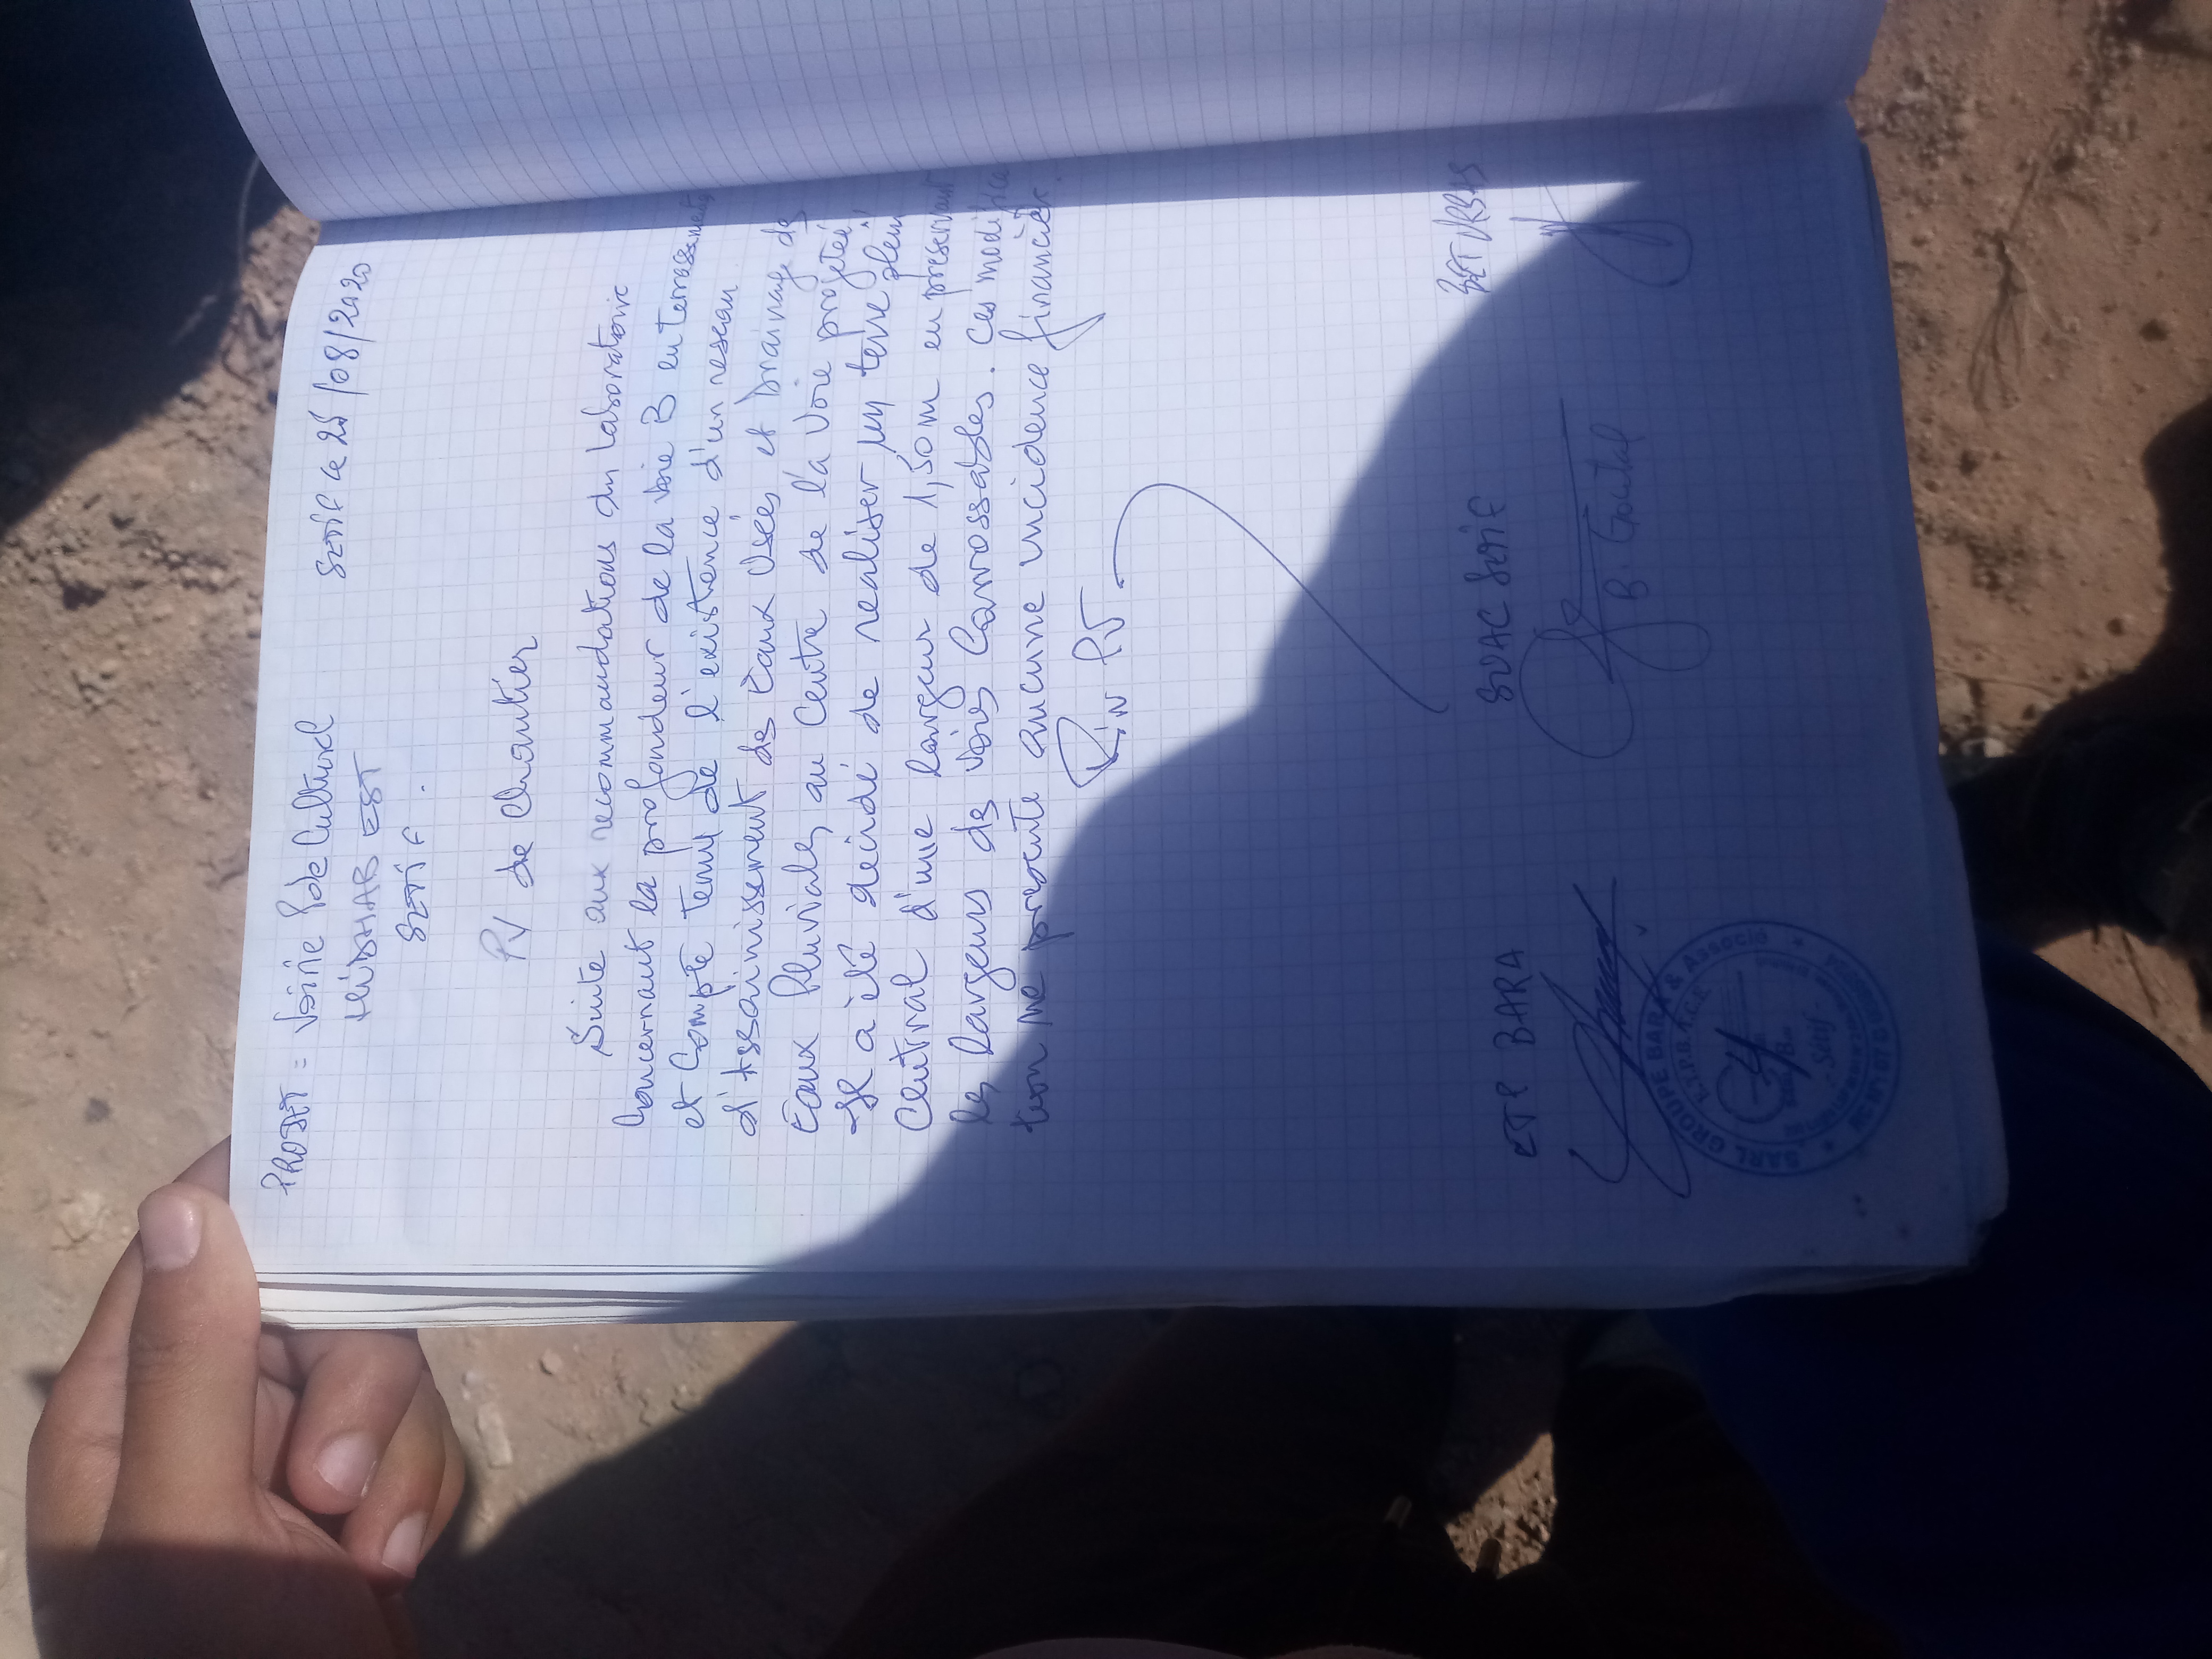 PROJET = Voirie Pole Culturel
Sétif le 25/08/2020
HIDHAB EST
SETIF.
PV de Chantier
Suite aux recommandations du Laboratoire
Concernant la profondeur de la voie B en terrassement
et Compte tenu de l'existence d'un reseau
d'Assainissement des Eaux Usées et Drainage des
Eaux Pluviales au Centre de la Voie projeteé,
Il a été decidé de realiser un terre plein
Central d'une largeur de 1,50m en preservant
les largeurs des voies Carrossables. Ces modifica
tion ne presente aucune incidence financière.
Fin PV
ETP BARA
SUAC Setif
BET URBAS
B. Goutal
SARL GROUPE BARA & Associé
E.T.P.B. T.C.E
Sétif